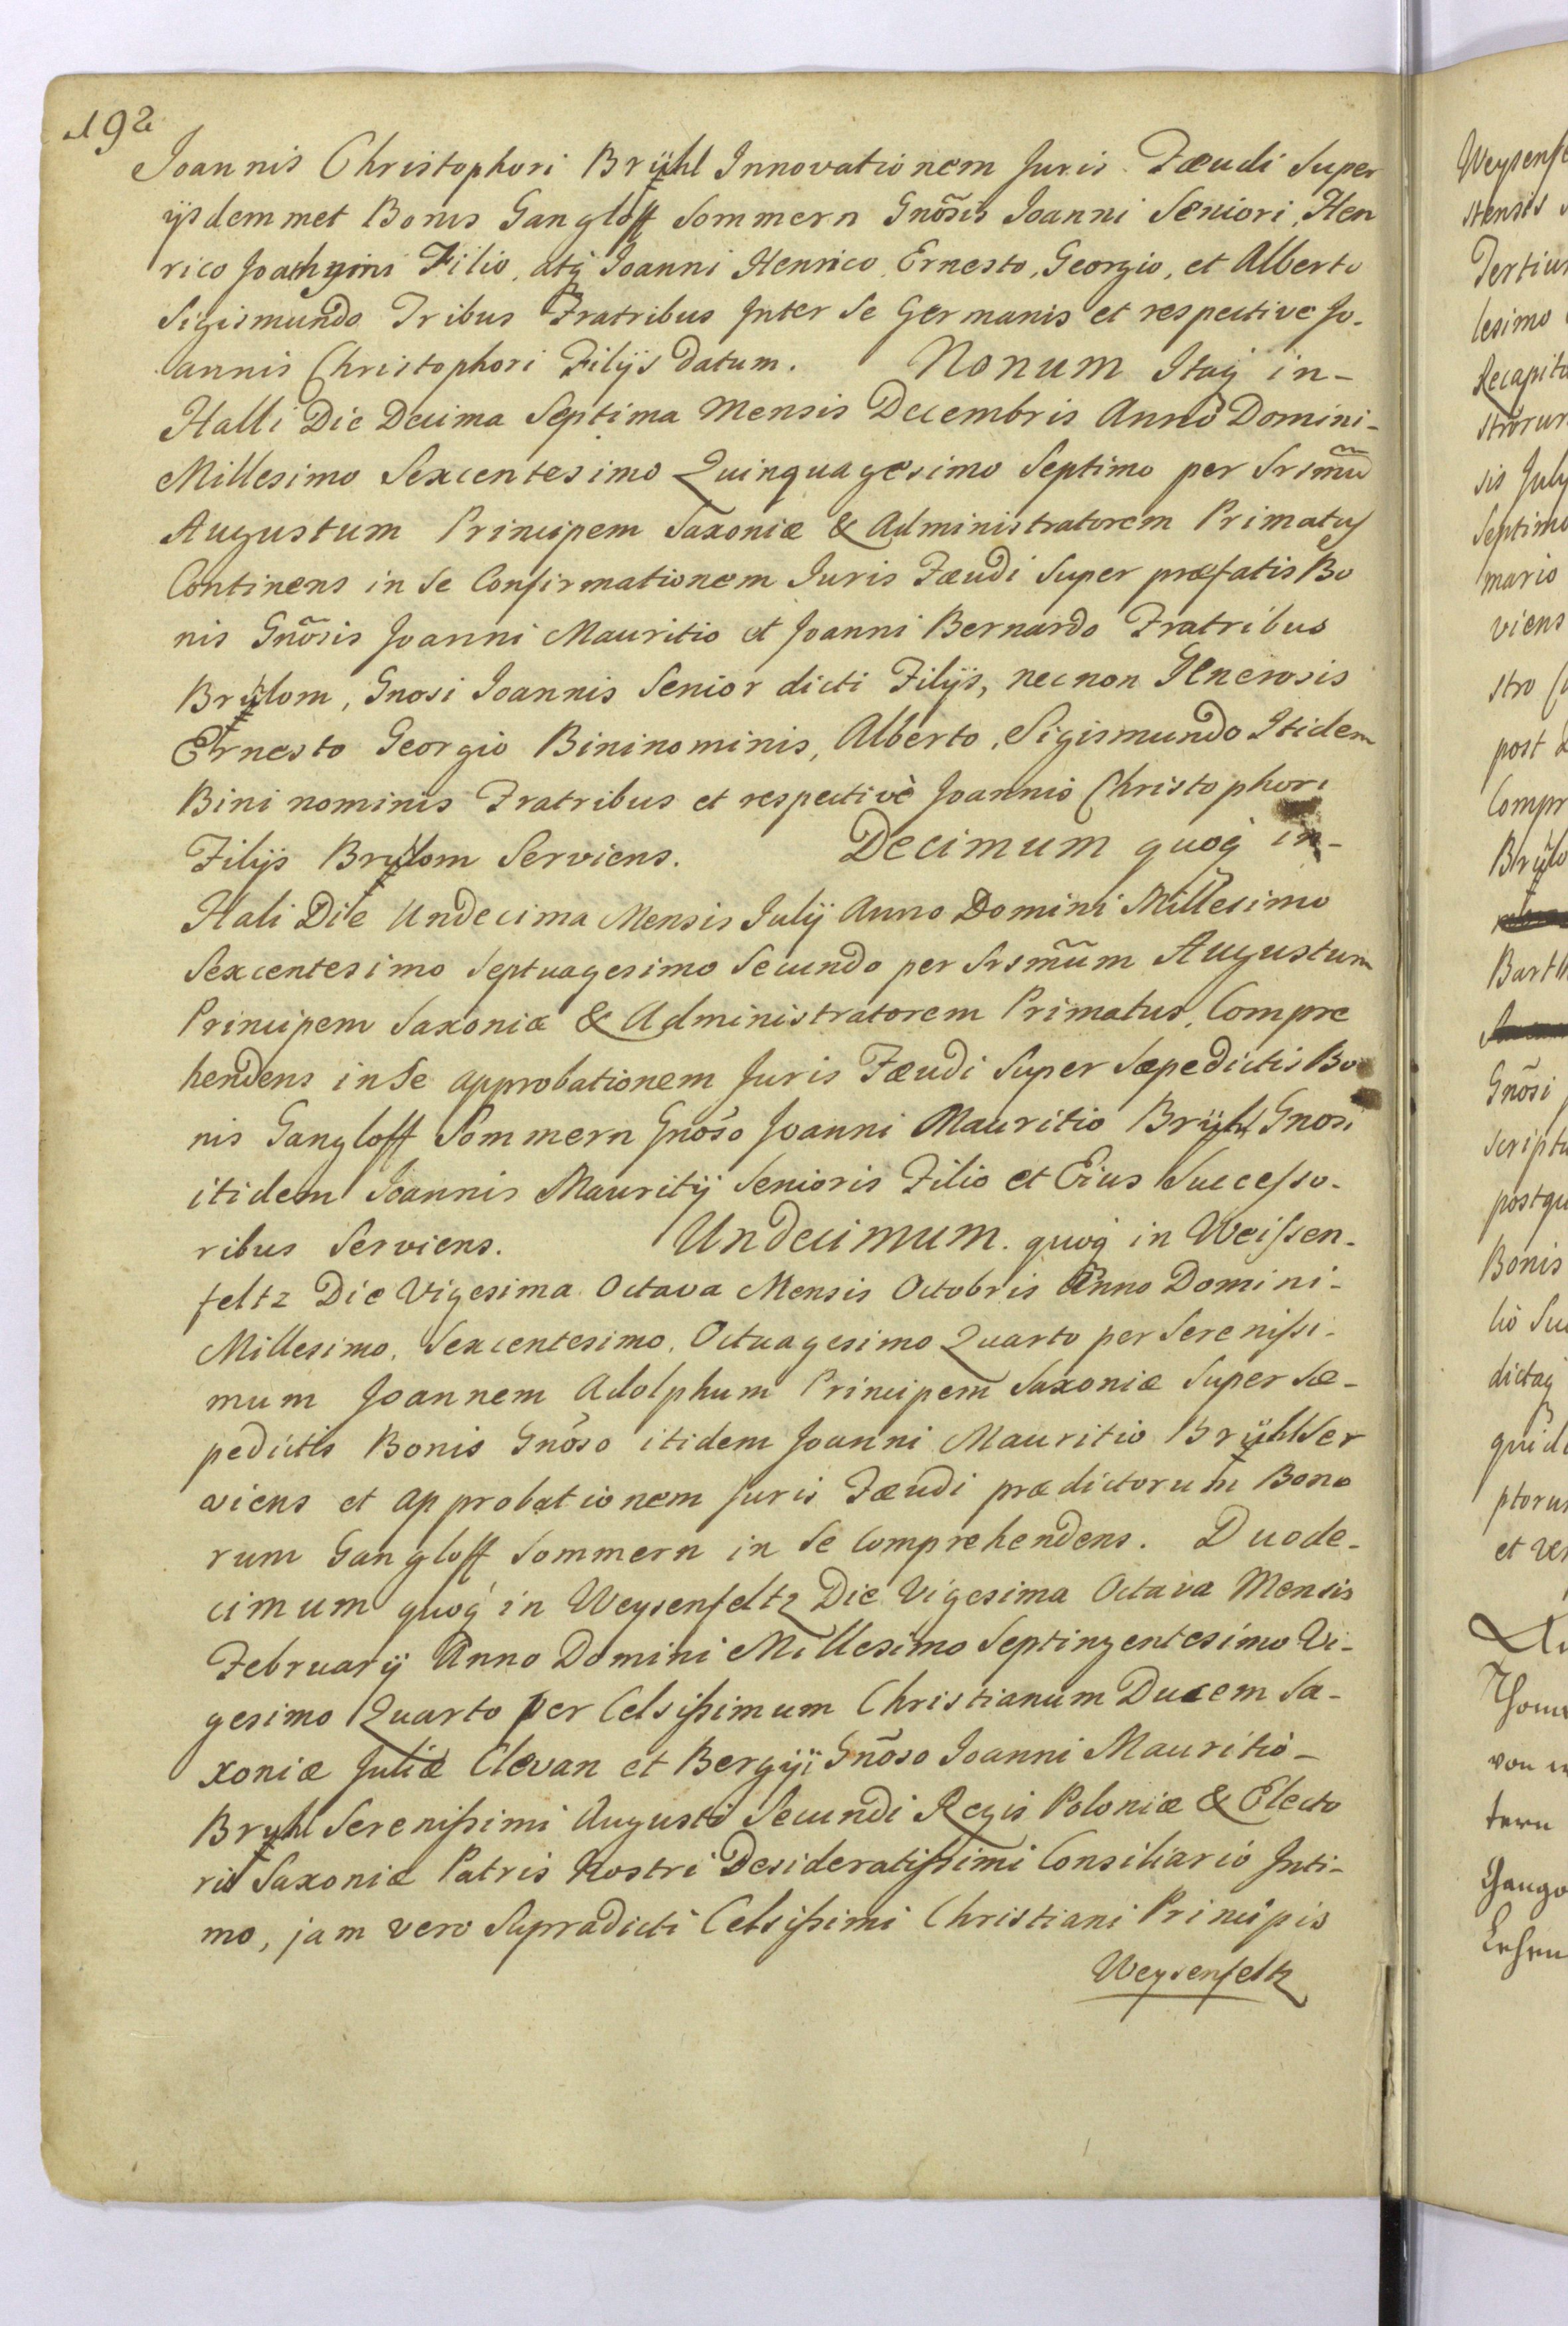 192
Joannis Christophori Brÿhl Innovationem Juris Fæudi Super
ijsdemmet Bonis Gangloff Sommern Gnõsis Joanni Seniori, Hen
rico Joachymi Filio, atq̃ Joanni Henrico, Ernesto, Georgio, et Alberto
Sigismundo Tribus Fratribus Inter Se Germanis et respective Jo-
annis Christophori Filijs datum. Nonum Itaq̃ in-
Halli Die Decima Septima Mensis Decembris Anno Domini-
Millesimo Sexcentesimo Quinquagesimo Septimo per Srsm̃u
Augustum Principem Saxoniæ & Administratorem Primatus
Continens in Se Confirmationem Juris Fæudi Super præfatis Bo
nis Gnõsis Joanni Mauritio et Joanni Bernardo Fratribus
Brÿlom, Gnosi Joannis Senior dicti Filijs, necnon Generosis
Ernesto Georgio Bininominis, Alberto, Sigismundo Itidem
Bini nominis Fratribus et respectivè Joannis Christophori
Filijs Brÿlom Serviens. Decimum quoq̃ in-
Hali Die Undecima Mensis Julij Anno Domini Millesimo
Sexcentesimo Septuagesimo Secundo per Srsm̃um Augustum
Principem Saxoniæ & Administratorem Primatus, Compre
hendens in Se approbationem Juris Fæudi Super Sæpedictis Bo
nis Gangloff Sommern Gnõso Joanni Mauritio Brÿhl Gnosi
itidem Joannis Mauritij Senioris Filio et Eius Successo-
ribus Serviens. Undecimum. quoq̃ in Weissen-
feltz Die Vigesima Octava Mensis Octobris Anno Domini-
Millesimo, Sexcentesimo, Octuagesimo Quarto per Serenissi-
mum Joannem Adolphum Principem Saxoniæ Super Sæ-
pedictis Bonis Gnõso itidem Joanni Mauritio Brÿhl Ser
viens et approbationem Juris Fæudi prædictorum Bono
rum Gangloff Sommern in Se Comprehendens. Duode-
cimum quoq̃ in Weysenfeltz Die Vigesima Octava Mensis
Februarij Anno Domini Millesimo Septingentesimo Vi-
gesimo Quarto per Celsissimum Christianum Ducem Sa-
xoniæ Juliæ Clevan et Bergÿi Gnõso Joanni Mauritio-
Bryhl Serenissimi Augusti Secundi Regis Poloniæ & Electo
ris Saxoniæ Patris Nostri Desideratissimi Consiliario Inti-
mo, jam vero Supradicti Celsissimi Christiani Principis
Weysenfeltz